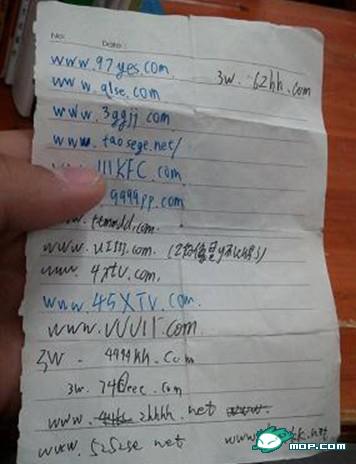 No:
Date:
www.97yes.com
3w. 62hh.com
www.qlse.com
www.3ggjj.com
www.taosege.net/
111KFC.com
9999pp.com
www.ttmmdd.com
www.4xtv.com.
www.45XTV.com.
3W. 4444hh.com
3w. 740eee.com
www. 2hhhh.net
www.5252se net
www.
.net
MOP.COM